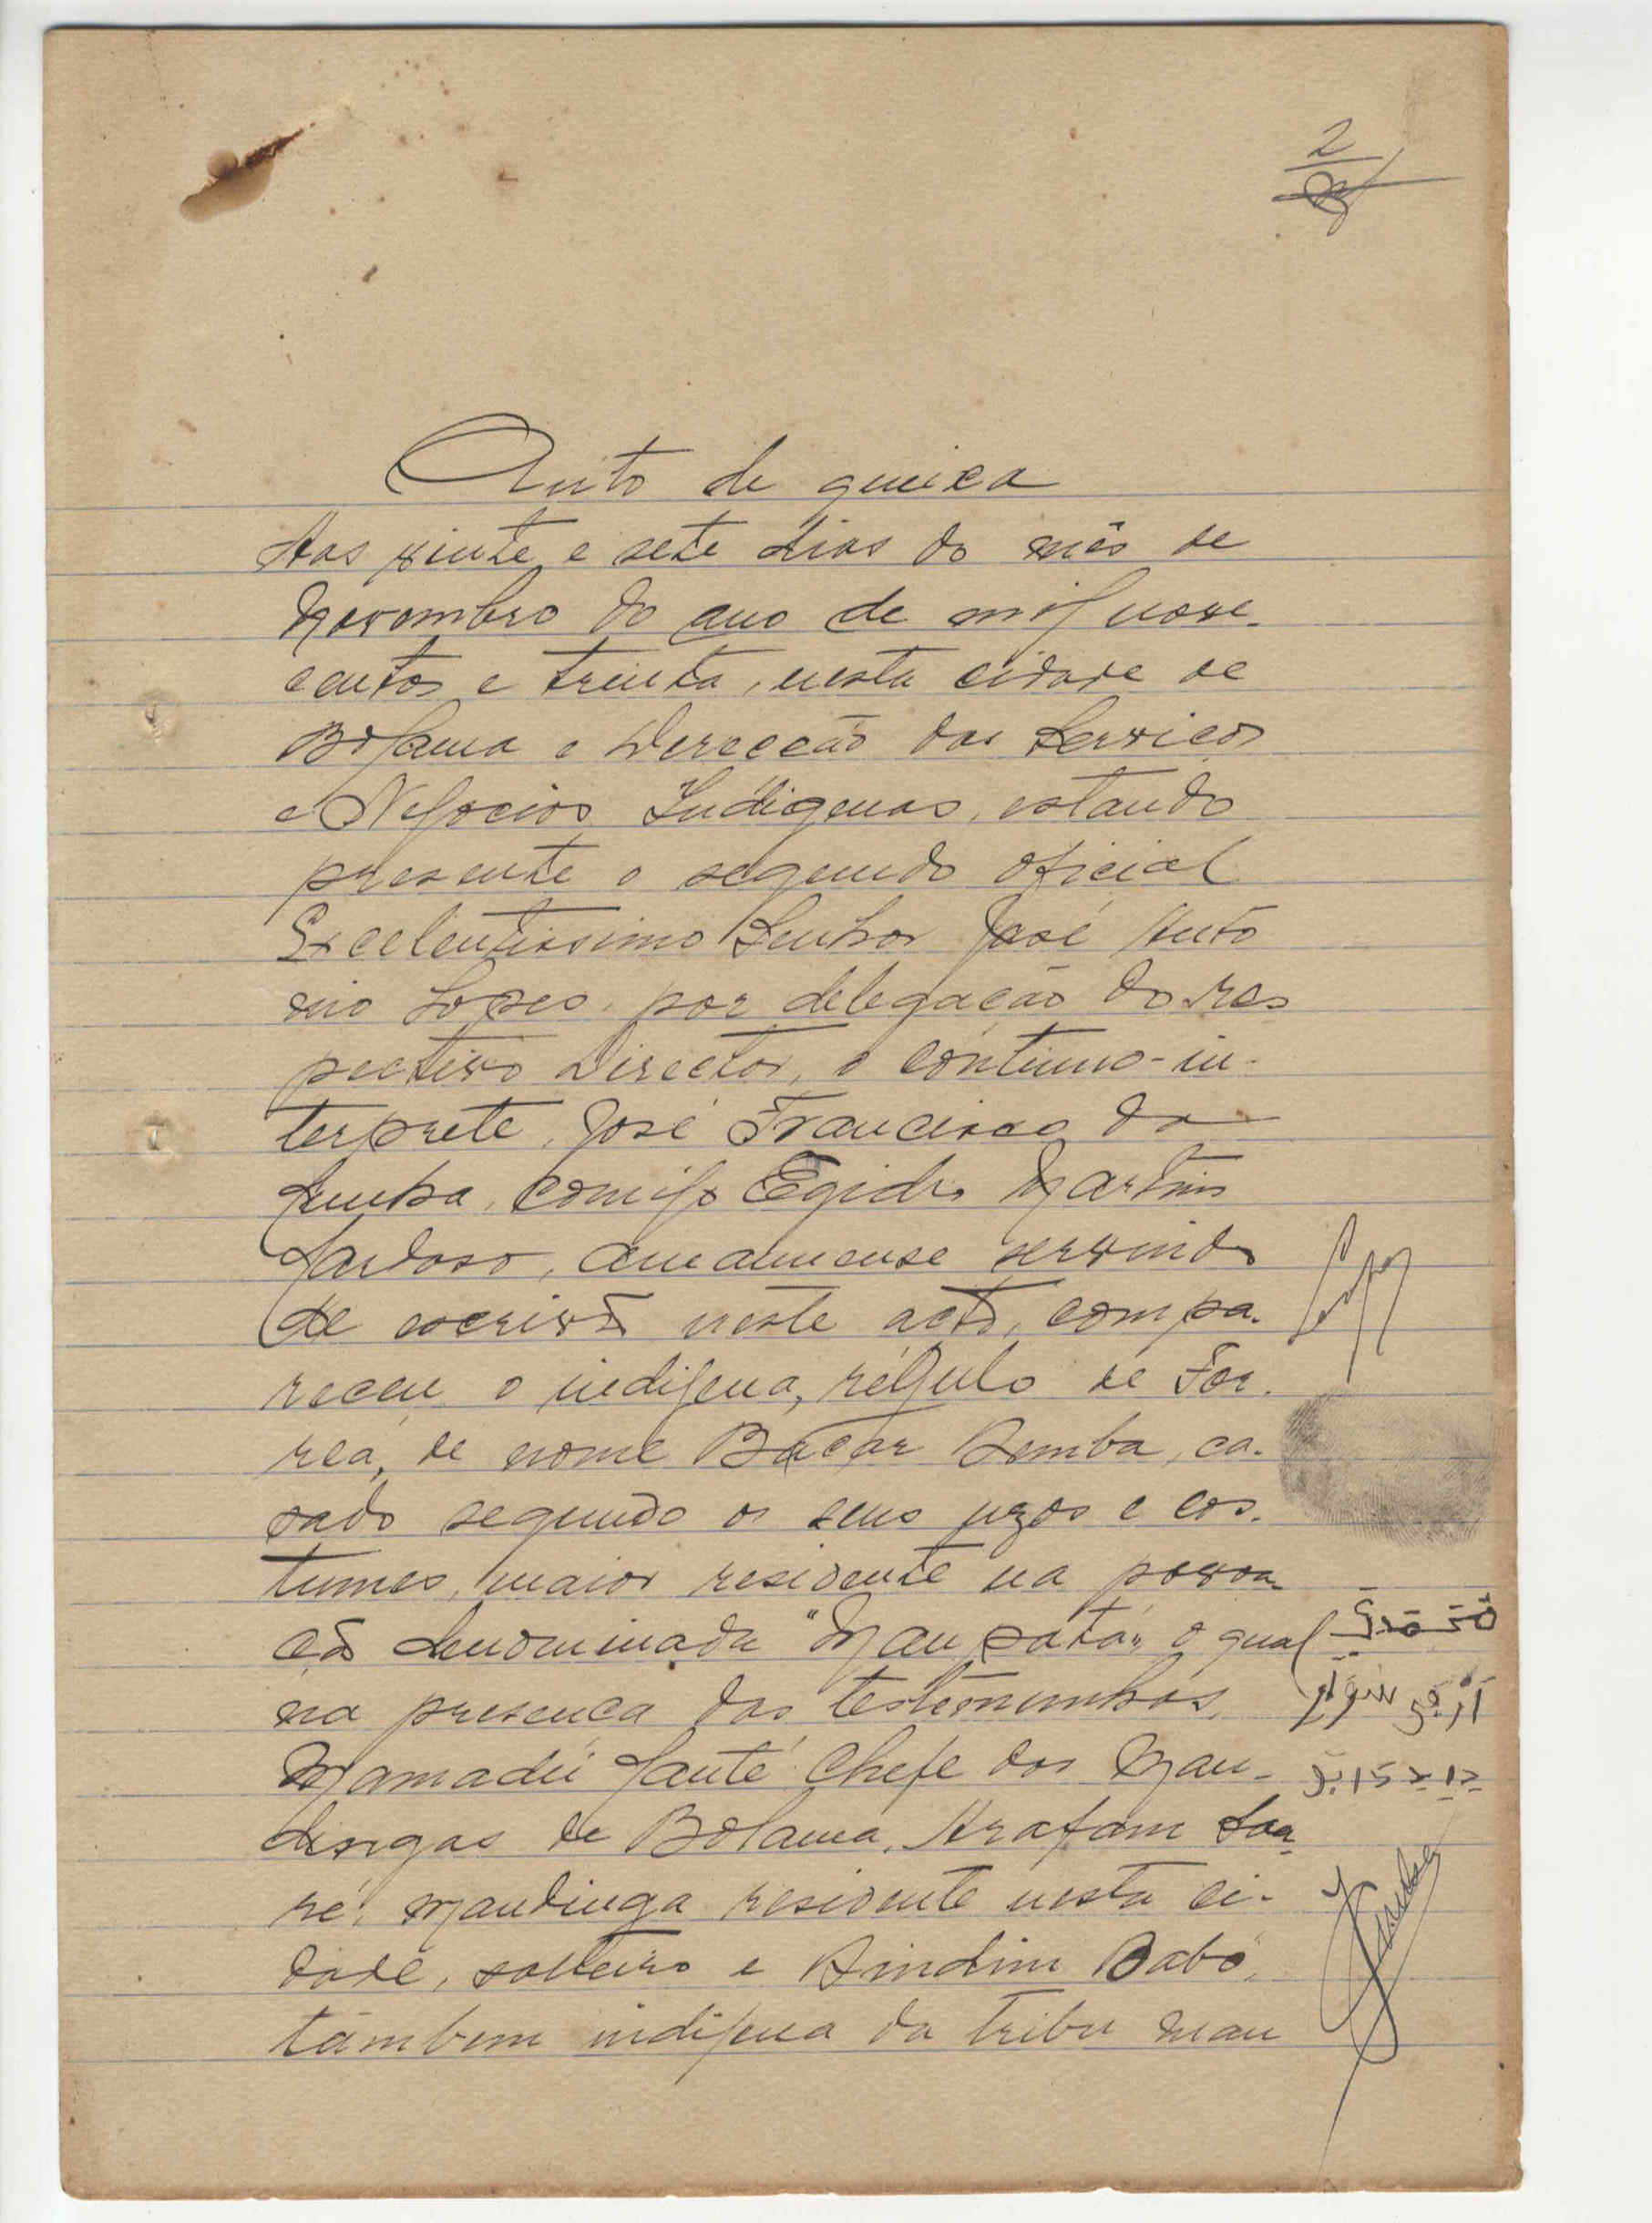 2
Auto de queixa
Aos vinte e sete dias do mês de
Novembro do ano de mil nove-
centos e trinta, nesta cidade de
Bolama e Direcção dos Serviços
e Negocios Indigenas, estando
presente o segundo oficial
Excelentissimo Senhor José Anto
nio Lopes, por delegação do res
pectivo Director, o contínuo-in-
terprete, José Francisco da
Cunha, comigo Egidio Martins
Cardoso, amanuense servindo
de escrivão neste acto, compa-
receu o indigena, régulo de For-
rea, de nome Bacar Demba, ca-
sado segundo os seus uzos e cos-
tumes, maior residente na povoa-
ção denominada "Mampatá", o qual
na presença das testemunhas,
Mamadú Santé Chefe dos Man-
dingas de Bolama, Arafam
mandinga residente nesta ci-
dade, solteiro e Babó,
tambem indigena da tribu man